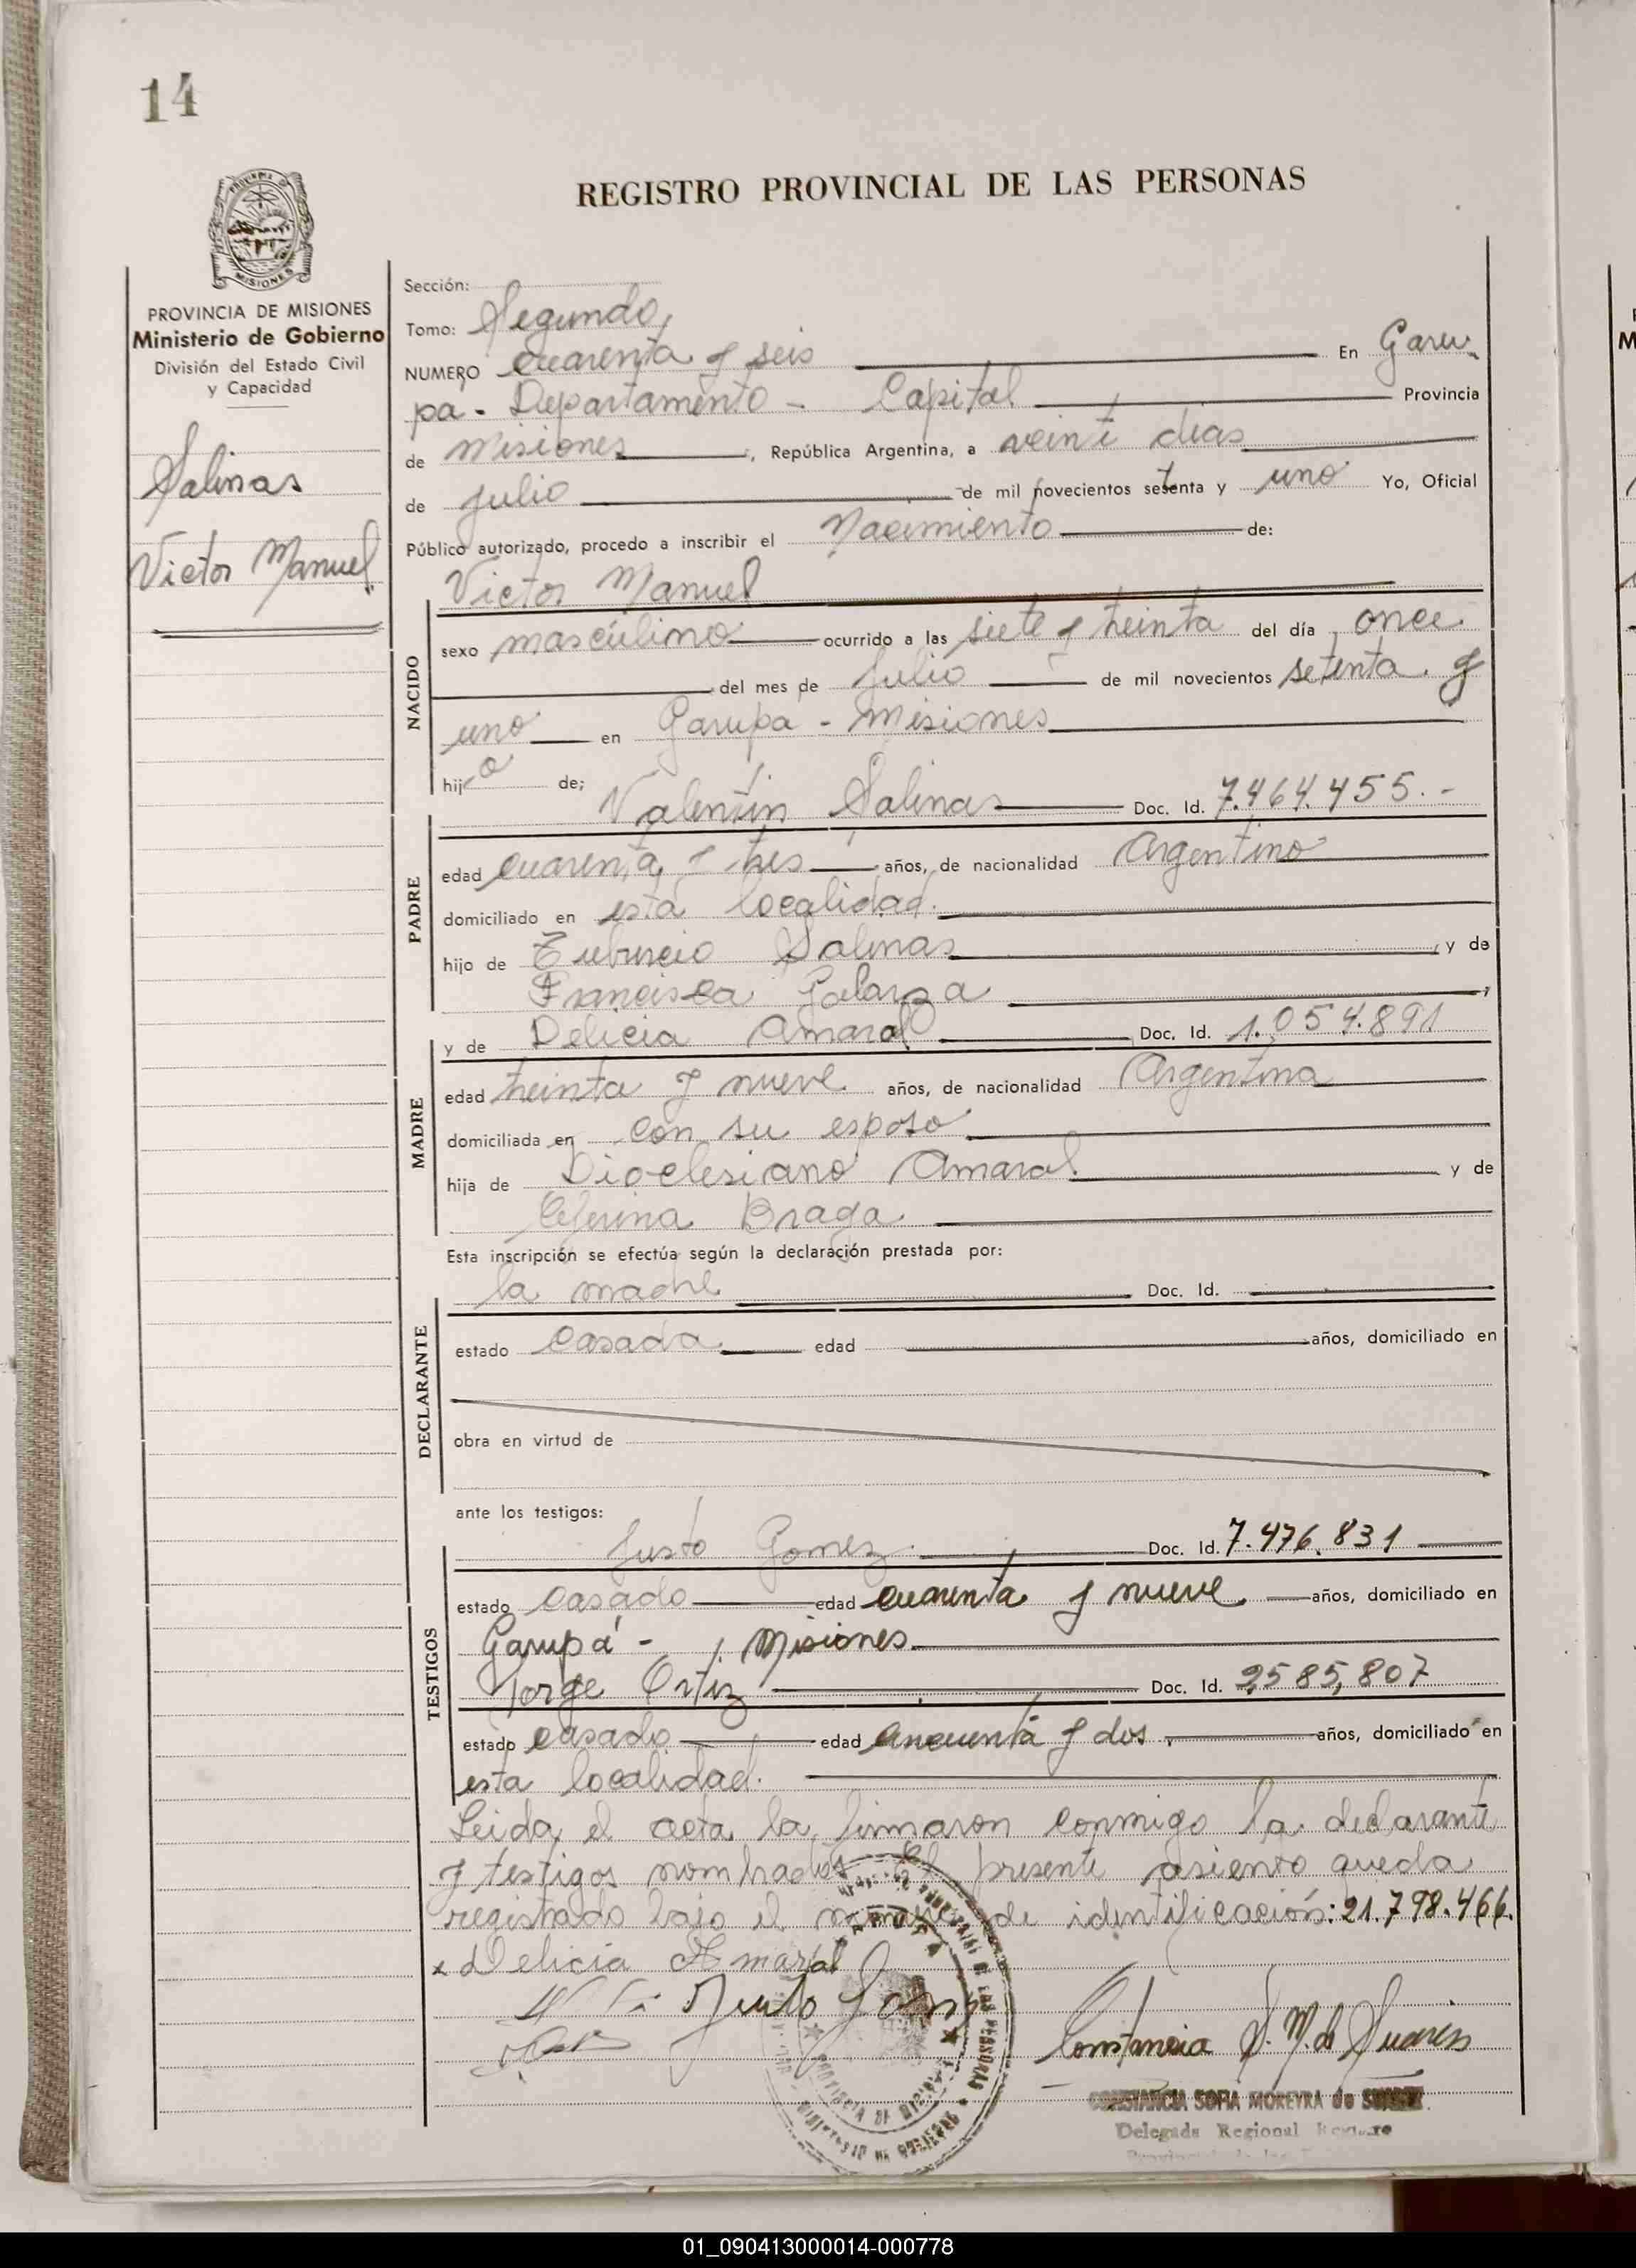 14
REGISTRO PROVINCIAL DE LAS PERSONAS
MISIONES
PROVINCIA DE MISIONES
Ministerio de Gobierno
División del Estado Civil
y Capacidad
Salinas
Victor Manuel
Sección:
Tomo: Segundo
NUMERO cuarenta y seis En Garu
pá - Departamento - Capital Provincia
de Misiones, República Argentina, a veinti dias
de Julio de mil novecientos setenta y uno Yo, Oficial
Público autorizado, procedo a inscribir el Nacimiento de:
Victor Manuel
NACIDO
sexo masculino ocurrido a las siete y treinta del día once
del mes de Julio de mil novecientos setenta y
uno en Garupá - Misiones
hijo de; Valentín Salinas Doc. Id. 7.464.455.-
PADRE
edad cuarenta y tres años, de nacionalidad Argentino
domiciliado en esta localidad.
hijo de Salinas, y de
Francisca Galarza,
y de Delicia Amaral Doc. Id. 1.054.891
MADRE
edad treinta y nueve años, de nacionalidad Argentina
domiciliada en con su esposo
hija de Dioclesiano Amaral y de
Ceferina Braga
Esta inscripción se efectúa según la declaración prestada por:
la madre Doc. Id.
DECLARANTE
estado casada edad años, domiciliado en
obra en virtud de
ante los testigos:
Justo Gomez Doc. Id. 7.476.831
TESTIGOS
estado casado edad cuarenta y nueve años, domiciliado en
Garupá - Misiones
Jorge Ortiz Doc. Id. 2585,807
estado casado edad cincuenta y dos años, domiciliado en
esta localidad.
Leida el acta la firmaron conmigo la declarante
y testigos nombrados. El presente asiento queda
registrado bajo el numero de identificación: 21.798.466.
x Delicia Amaral
Justo
Constancia S. M. de Suarez
CONSTANCIA SOFIA MOREYRA de SUAREZ
Delegada Regional Registro
01_090413000014-000778